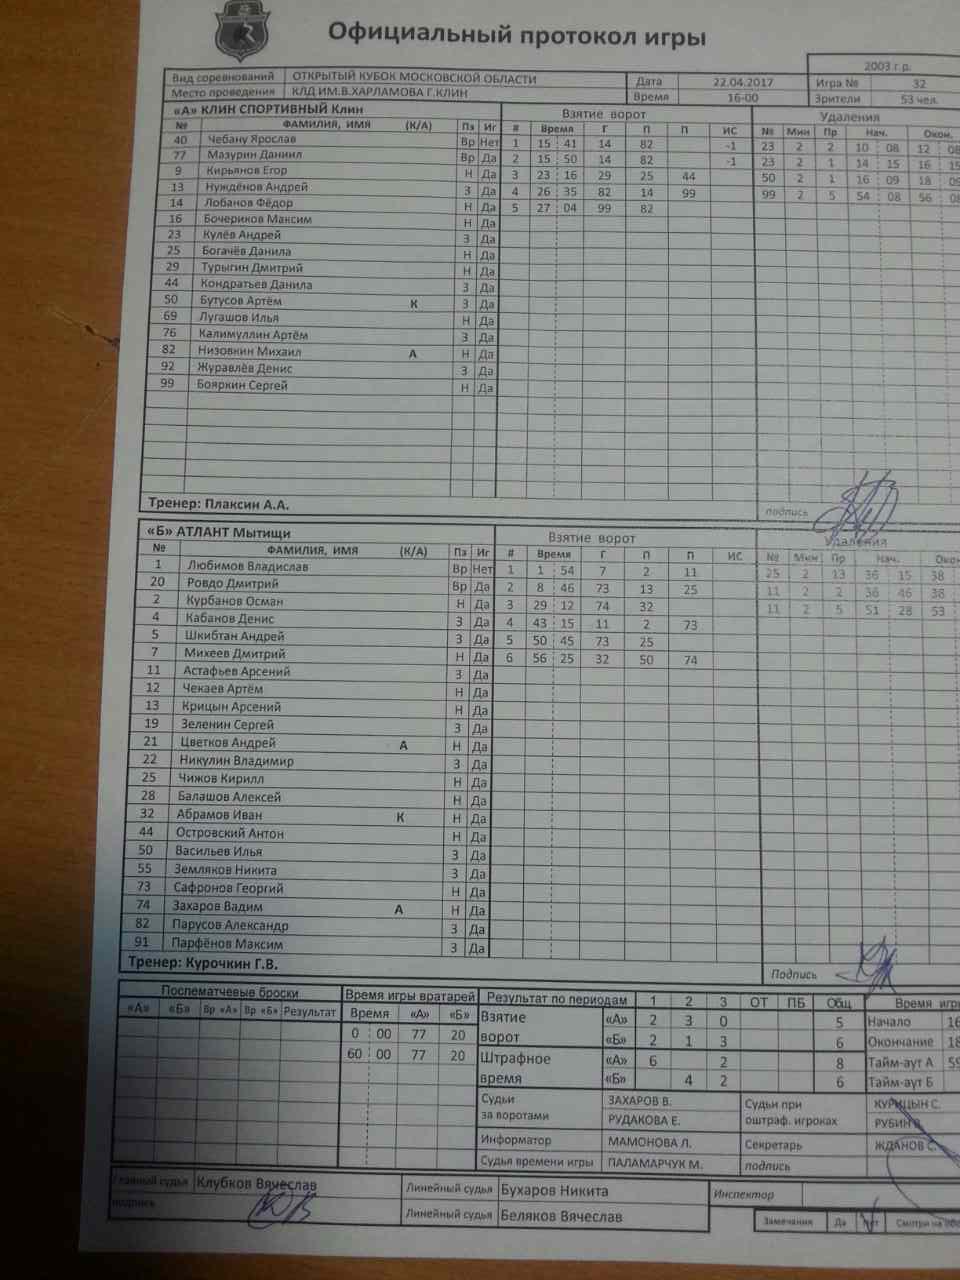 Официальный протокол игры
2003 г.р.
Вид соревнований ОТКРЫТЫЙ КУБОК МОСКОВСКОЙ ОБЛАСТИ Дата 22.04.2017 Игра № 32
Место проведения КЛД ИМ.В.ХАРЛАМОВА Г.КЛИН Время 16-00 Зрители 53 чел.
«А» КЛИН СПОРТИВНЫЙ Клин Взятие ворот Удаления
№ ФАМИЛИЯ, ИМЯ (К/А) Пз Иг # Время Г П П ИС № Мин Пр Нач. Окон.
40 Чебану Ярослав Вр Нет 1 15 41 14 82 -1 23 2 2 10 08 12 08
77 Мазурин Даниил Вр Да 2 15 50 14 82 -1 23 2 1 14 15 16 15
9 Кирьянов Егор Н Да 3 23 16 29 25 44 50 2 1 16 09 18 09
13 Нуждёнов Андрей З Да 4 26 35 82 14 99 99 2 5 54 08 56 08
14 Лобанов Фёдор Н Да 5 27 04 99 82
16 Бочериков Максим Н Да
23 Кулёв Андрей З Да
25 Богачёв Данила Н Да
29 Турыгин Дмитрий Н Да
44 Кондратьев Данила З Да
50 Бутусов Артём К З Да
69 Лугашов Илья Н Да
76 Калимуллин Артём З Да
82 Низовкин Михаил А Н Да
92 Журавлёв Денис З Да
99 Бояркин Сергей Н Да
Тренер: Плаксин А.А. подпись
«Б» АТЛАНТ Мытищи Взятие ворот Удаления
№ ФАМИЛИЯ, ИМЯ (К/А) Пз Иг # Время Г П П ИС № Мин Пр Нач. Окон
1 Любимов Владислав Вр Нет 1 1 54 7 2 11 25 2 13 36 15 38
20 Ровдо Дмитрий Вр Да 2 8 46 73 13 25 11 2 2 36 46 38
2 Курбанов Осман Н Да 3 29 12 74 32 11 2 5 51 28 53
4 Кабанов Денис З Да 4 43 15 11 2 73
5 Шкибтан Андрей З Да 5 50 45 73 25
7 Михеев Дмитрий Н Да 6 56 25 32 50 74
11 Астафьев Арсений З Да
12 Чекаев Артём Н Да
13 Крицын Арсений Н Да
19 Зеленин Сергей З Да
21 Цветков Андрей А Н Да
22 Никулин Владимир З Да
25 Чижов Кирилл Н Да
28 Балашов Алексей Н Да
32 Абрамов Иван К Н Да
44 Островский Антон Н Да
50 Васильев Илья З Да
55 Земляков Никита З Да
73 Сафронов Георгий Н Да
74 Захаров Вадим А Н Да
82 Парусов Александр З Да
91 Парфёнов Максим З Да
Тренер: Курочкин Г.В. Подпись
Послематчевые броски Время игры вратарей Результат по периодам 1 2 3 ОТ ПБ Общ Время игры
«А» «Б» Вр «А» Вр «Б» Результат Время «А» «Б» Взятие ворот «А» 2 3 0 5 Начало 16
0 00 77 20 «Б» 2 1 3 6 Окончание 18
60 00 77 20 Штрафное время «А» 6 2 8 Тайм-аут А 59
«Б» 4 2 6 Тайм-аут Б
Судьи за воротами ЗАХАРОВ В. Судьи при оштраф. игроках КУРИЦЫН С.
РУДАКОВА Е. РУБИН В.
Информатор МАМОНОВА Л. Секретарь ЖДАНОВ С.
Судья времени игры ПАЛАМАРЧУК М. подпись
Главный судья Клубков Вячеслав Линейный судья Бухаров Никита Инспектор
подпись Линейный судья Беляков Вячеслав Замечания Да Нет Смотри на обо